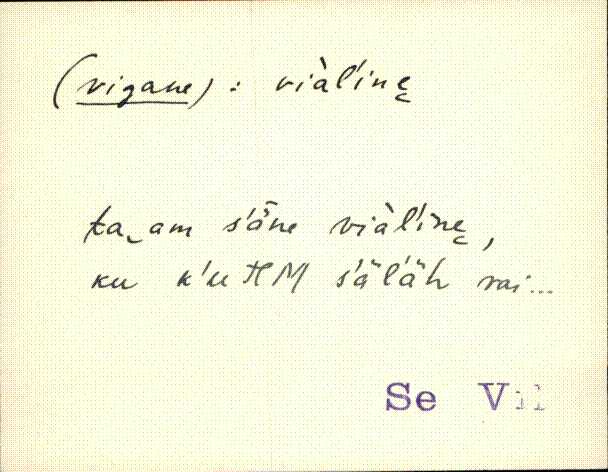 (vigane) : viàl'inę
ta‿am s'āne viàl'inę,
ku k'uHM s'äl'äh vai...
Se Vil